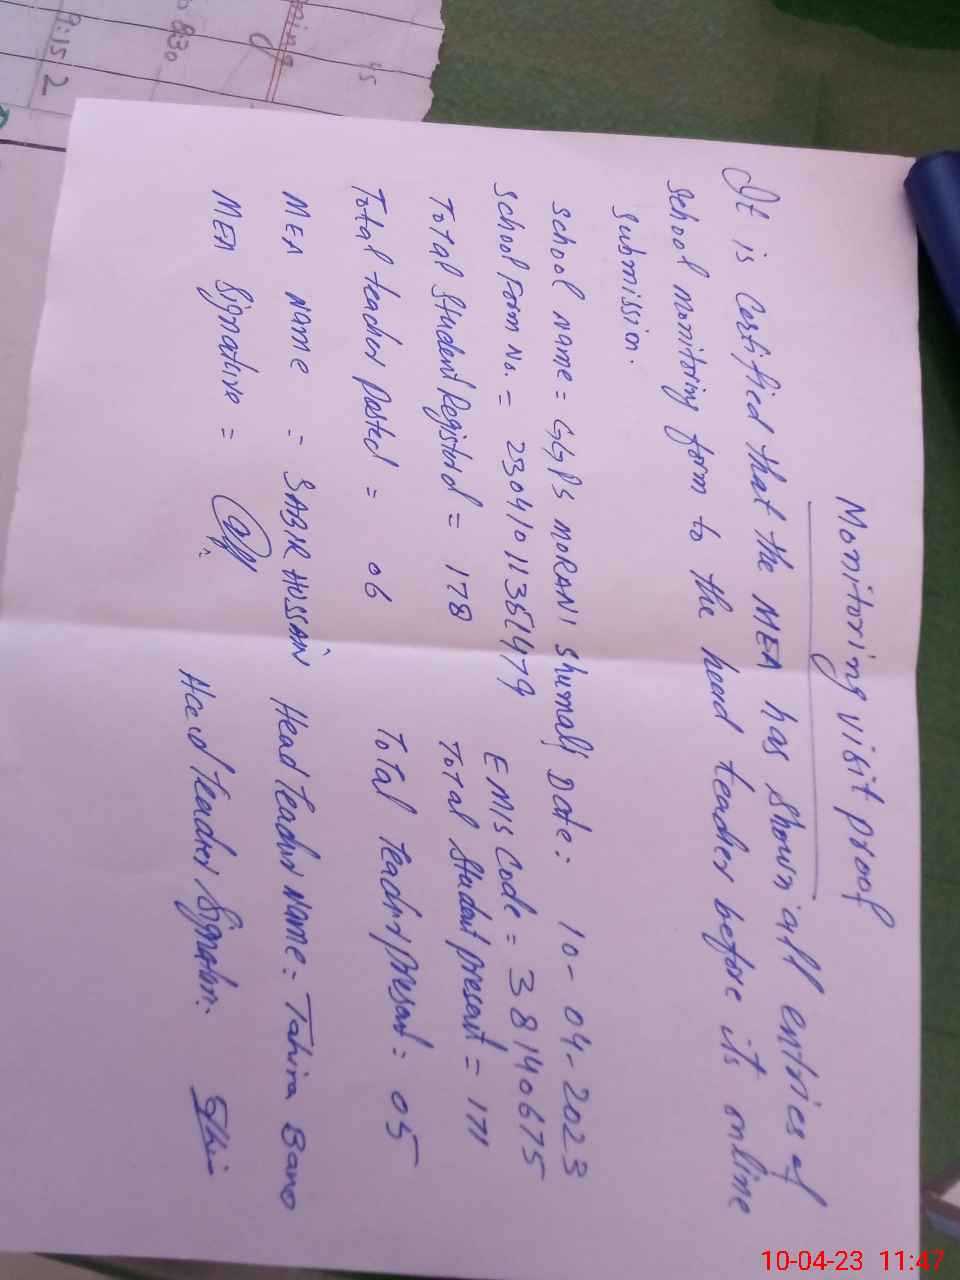 Monitoring visit proof
It is Certified that the MEA has shown all entries of
School monitoring form to the head teacher before its online
Submission.
School name = GGPS MORANI Shumali Date: 10-04-2023
School Form No. = 23041011351479 EMIS Code = 38140675
Total Student Registerd = 178 Total Student present = 171
Total teacher Posted = 06 Total teacher present = 05
MEA name = SABIR HUSSAIN Head teacher Name = Tahira Bano
MEA Signature = Head teacher Signature.
45
8:30
9:15 2
10-04-23 11:47